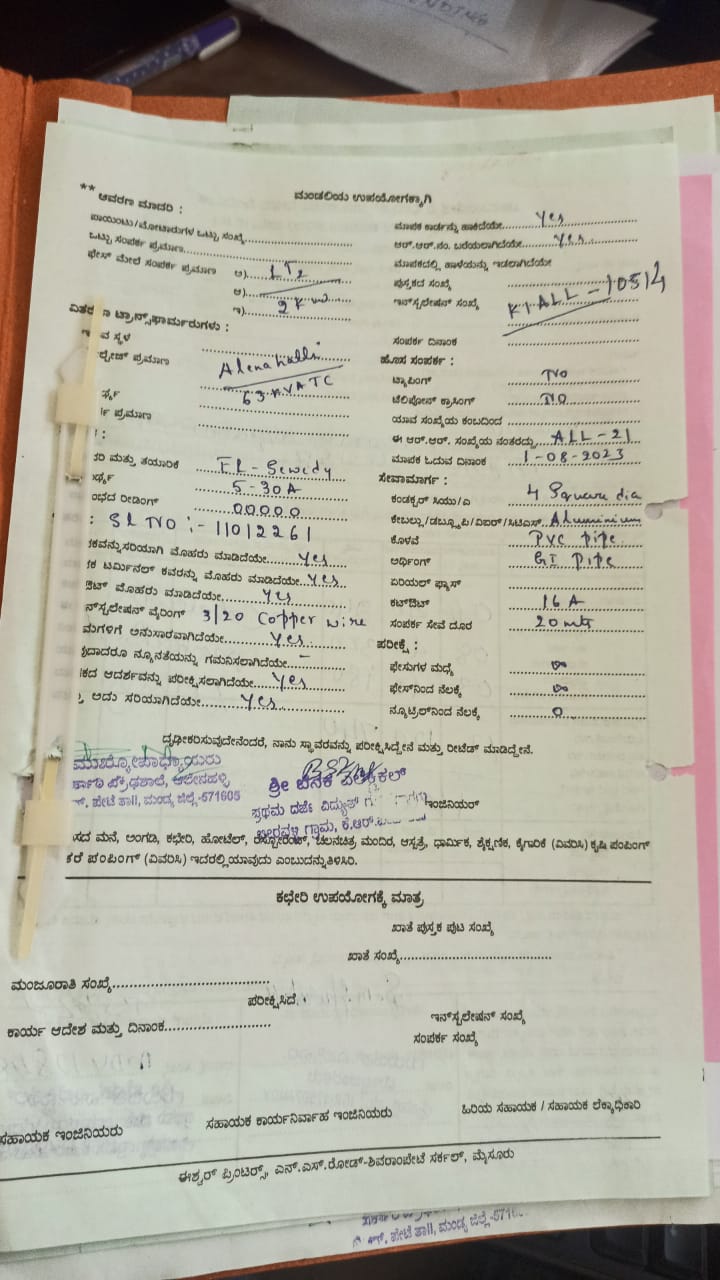 NDING
ಮಂಡಲಿಯ ಉಪಯೋಗಕ್ಕಾಗಿ
** ಆವರಣ ಮಾದರಿ :
ಪಾಯಿಂಟು/ಮೋಟಾರುಗಳ ಒಟ್ಟು ಸಂಖ್ಯೆ
ಒಟ್ಟು ಸಂಪರ್ಕ ಪ್ರಮಾಣ
ಫೇಸ್ ಮೇಲೆ ಸಂಪರ್ಕ ಪ್ರಮಾಣ ಅ) LT2
ಆ)
ಇ) 2 Kw
ಟ್ರಾನ್ಸ್‌ಫಾರ್ಮರುಗಳು :
ಸ್ಥಳ Alenahalli
ಪ್ರಮಾಣ 63 KVA TC
ಪ್ರಮಾಣ
ಮತ್ತು ತಯಾರಿಕೆ EL - Sewedy
5-30A
ರೀಡಿಂಗ್ 00000
: Sl No :- 11012261
ಮೊಹರು ಮಾಡಿದೆಯೇ Yes
ಟರ್ಮಿನಲ್ ಕವರನ್ನು ಮೊಹರು ಮಾಡಿದೆಯೇ Yes
ಮೊಹರು ಮಾಡಿದೆಯೇ Yes
ವೈರಿಂಗ್ 3/20 Copper wire
ಅನುಸಾರವಾಗಿದೆಯೇ Yes
ನ್ಯೂನತೆಯನ್ನು ಗಮನಿಸಲಾಗಿದೆಯೇ –
ಆದರ್ಶವನ್ನು ಪರೀಕ್ಷಿಸಲಾಗಿದೆಯೇ Yes
ಅದು ಸರಿಯಾಗಿದೆಯೇ Yes
ಮಾಪಕ ಕಾರ್ಡನ್ನು ಹಾಕಿದೆಯೇ Yes
ಆರ್.ಆರ್.ನಂ. ಬರೆಯಲಾಗಿದೆಯೇ Yes
ಮಾಪಕದಲ್ಲಿ ಹಾಳೆಯನ್ನು ಇಡಲಾಗಿದೆಯೇ
ಪುಸ್ತಕದ ಸಂಖ್ಯೆ
ಇನ್‌ಸ್ಟಲೇಷನ್ ಸಂಖ್ಯೆ K1ALL - 10514
ಸಂಪರ್ಕ ದಿನಾಂಕ
ಹೊಸ ಸಂಪರ್ಕ :
ಟ್ಯಾಪಿಂಗ್ NO
ಟೆಲಿಫೋನ್ ಕ್ರಾಸಿಂಗ್ NO
ಯಾವ ಸಂಖ್ಯೆಯ ಕಂಬದಿಂದ
ಈ ಆರ್.ಆರ್. ಸಂಖ್ಯೆಯ ನಂತರದ್ದು ALL - 21
ಮಾಪಕ ಓದುವ ದಿನಾಂಕ 1-08-2023
ಸೇವಾಮಾರ್ಗ :
ಕಂಡಕ್ಟರ್ ಸಿಯು/ಎ 4 Square dia
ಕೇಬಲ್ಲು/ಡಬ್ಲ್ಯೂಪಿ/ವಿಐಆರ್/ಸಿಟಿಎಸ್ Aluminium
ಕೊಳವೆ PVC pipe
ಅರ್ಥಿಂಗ್ GI Pipe
ಏರಿಯಲ್ ಫ್ಯೂಸ್
ಕಟ್‌ಔಟ್ 16 A
ಸಂಪರ್ಕ ಸೇವೆ ದೂರ 20 mts
ಪರೀಕ್ಷೆ :
ಫೇಸುಗಳ ಮಧ್ಯೆ ∞
ಫೇಸ್‌ನಿಂದ ನೆಲಕ್ಕೆ ∞
ನ್ಯೂಟ್ರಲ್‌ನಿಂದ ನೆಲಕ್ಕೆ 0
ದೃಢೀಕರಿಸುವುದೇನೆಂದರೆ, ನಾನು ಸ್ಥಾವರವನ್ನು ಪರೀಕ್ಷಿಸಿದ್ದೇನೆ ಮತ್ತು ರೀಟೆಡ್ ಮಾಡಿದ್ದೇನೆ.
ಮುಖ್ಯೋಪಾಧ್ಯಾಯರು
ಪ್ರೌಢಶಾಲೆ, ಆಲೇನಹಳ್ಳಿ
ಪೇಟೆ ತಾ||, ಮಂಡ್ಯ ಜಿಲ್ಲೆ-571605
ಶ್ರೀ ಎಲೆಕ್ಟ್ರಿಕಲ್
ಪ್ರಥಮ ದರ್ಜೆ ವಿದ್ಯುತ್
ಗ್ರಾಮ, ಕೆ.ಆರ್.
ಇಂಜಿನಿಯರ್
ಮನೆ, ಅಂಗಡಿ, ಕಛೇರಿ, ಹೋಟೆಲ್, ರೆಸ್ಟೋರೆಂಟ್, ಚಲನಚಿತ್ರ ಮಂದಿರ, ಆಸ್ಪತ್ರೆ, ಧಾರ್ಮಿಕ, ಶೈಕ್ಷಣಿಕ, ಕೈಗಾರಿಕೆ (ವಿವರಿಸಿ) ಕೃಷಿ ಪಂಪಿಂಗ್
ಪಂಪಿಂಗ್ (ವಿವರಿಸಿ) ಇದರಲ್ಲಿಯಾವುದು ಎಂಬುದನ್ನುತಿಳಿಸಿರಿ.
ಕಛೇರಿ ಉಪಯೋಗಕ್ಕೆ ಮಾತ್ರ
ಖಾತೆ ಪುಸ್ತಕ ಪುಟ ಸಂಖ್ಯೆ
ಖಾತೆ ಸಂಖ್ಯೆ
ಮಂಜೂರಾತಿ ಸಂಖ್ಯೆ
ಪರೀಕ್ಷಿಸಿದೆ.
ಇನ್‌ಸ್ಟಲೇಷನ್ ಸಂಖ್ಯೆ
ಕಾರ್ಯ ಆದೇಶ ಮತ್ತು ದಿನಾಂಕ
ಸಂಪರ್ಕ ಸಂಖ್ಯೆ
ಸಹಾಯಕ ಇಂಜಿನಿಯರು ಸಹಾಯಕ ಕಾರ್ಯನಿರ್ವಾಹ ಇಂಜಿನಿಯರು ಹಿರಿಯ ಸಹಾಯಕ / ಸಹಾಯಕ ಲೆಕ್ಕಾಧಿಕಾರಿ
ಈಶ್ವರ್ ಪ್ರಿಂಟರ್ಸ್, ಎನ್.ಎಸ್.ರೋಡ್-ಶಿವರಾಂಪೇಟೆ ಸರ್ಕಲ್, ಮೈಸೂರು
ಪೇಟೆ ತಾ||, ಮಂಡ್ಯ ಜಿಲ್ಲೆ-571